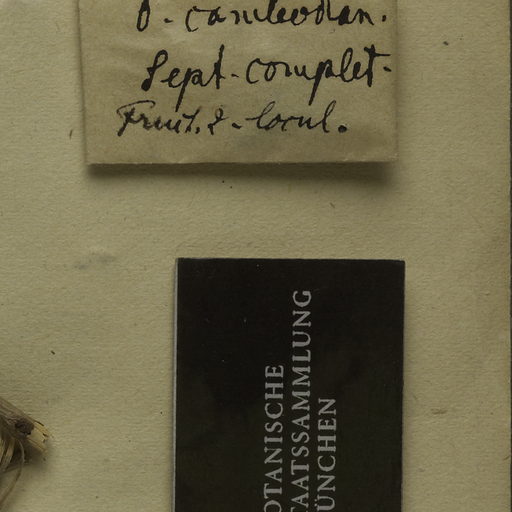 Sept. complet.
Fruct. 2-locul.
OTANISCHE
TAATSSAMMLUNG
ÜNCHEN